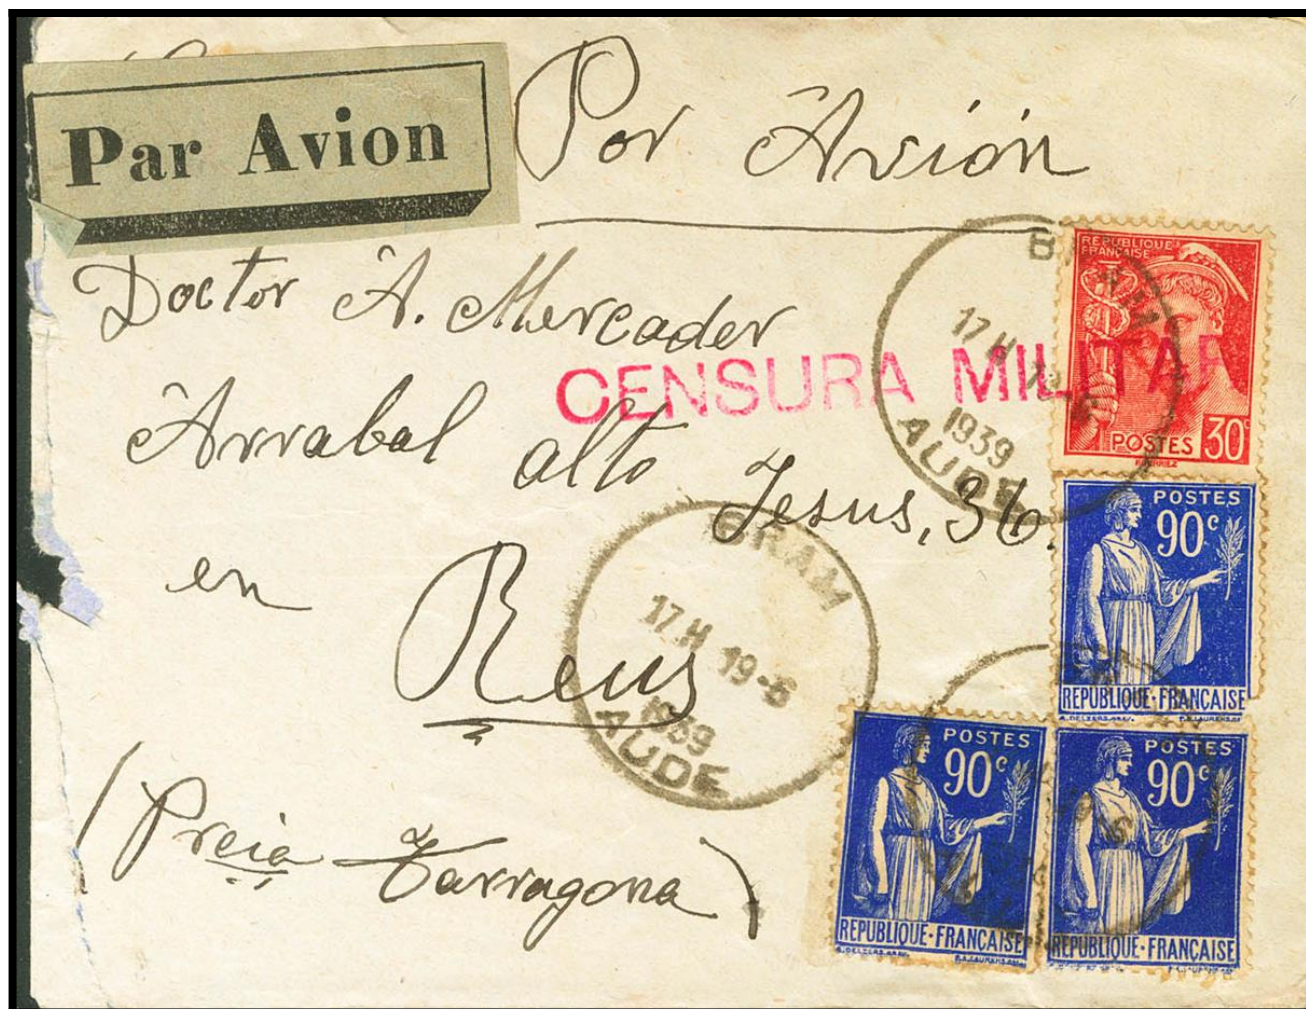 Par Avion
Por Avión
Doctor A. Mercader
CENSURA MILITAR
Arrabal alto
Jesus, 36.
en
Reus
(Preia Tarragona)
BRAM
17 H 19-6
1939
AUDE
BRAM
17 H
1939
AUDE
REPUBLIQUE
FRANÇAISE
POSTES 30c
POSTES
90c
REPUBLIQUE·FRANÇAISE
POSTES
90c
REPUBLIQUE·FRANÇAISE
POSTES
90c
REPUBLIQUE·FRANÇAISE